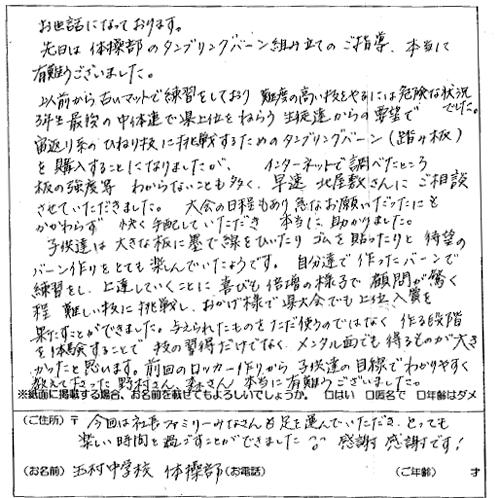 お世話になっております。
先日は 体操部のタンブリングバーン組み立ての ご指導、本当に
有難うございました。
以前から古いマットで練習をしており 難度の高い技をやるには危険な状況
でした。
3年生最後の中体連で県上位をねらう 生徒達からの要望で
宙返り系の ひねり技に挑戦するための タンブリングバーン(踏み板)
を購入することになりましたが、 インターネットで調べたところ
板の強度等 わからないことも多く、早速 北屋敷さんに ご相談
させていただきました。 大会の日程もあり 急なお願いだったにも
かかわらず 快く手配していただき 本当に助かりました。
子供達は 大きな板に墨で線をひいたり ゴムを貼ったりと 待望の
バーン作りをとても楽しんでいたようです。 自分達で作ったバーンで
練習をし、上達していくことに 喜びも倍増の様子で 顧問が驚く
程 難しい技に挑戦し、おかげ様で県大会でも上位入賞を
果たすことができました。与えられたものをただ使うのではなく 作る段階
を体験することで 技の習得だけでなく、メンタル面でも 得るものが大き
かったと思います。前回のロッカー作りから 子供達の目線でわかりやすく
教えて下さった 野村さん、森さん 本当に有難うございました。
※紙面に掲載する場合、お名前を載せてもよろしいでしょうか。 □はい □匿名で □年齢はダメ
(ご住所)〒 今回は社長ファミリーみなさんも足を運んでいただき、とっても
楽しい時間を過ごすことができました 感謝 感謝です!
(お名前) 玉村中学校 体操部 (お電話) (ご年齢) 才